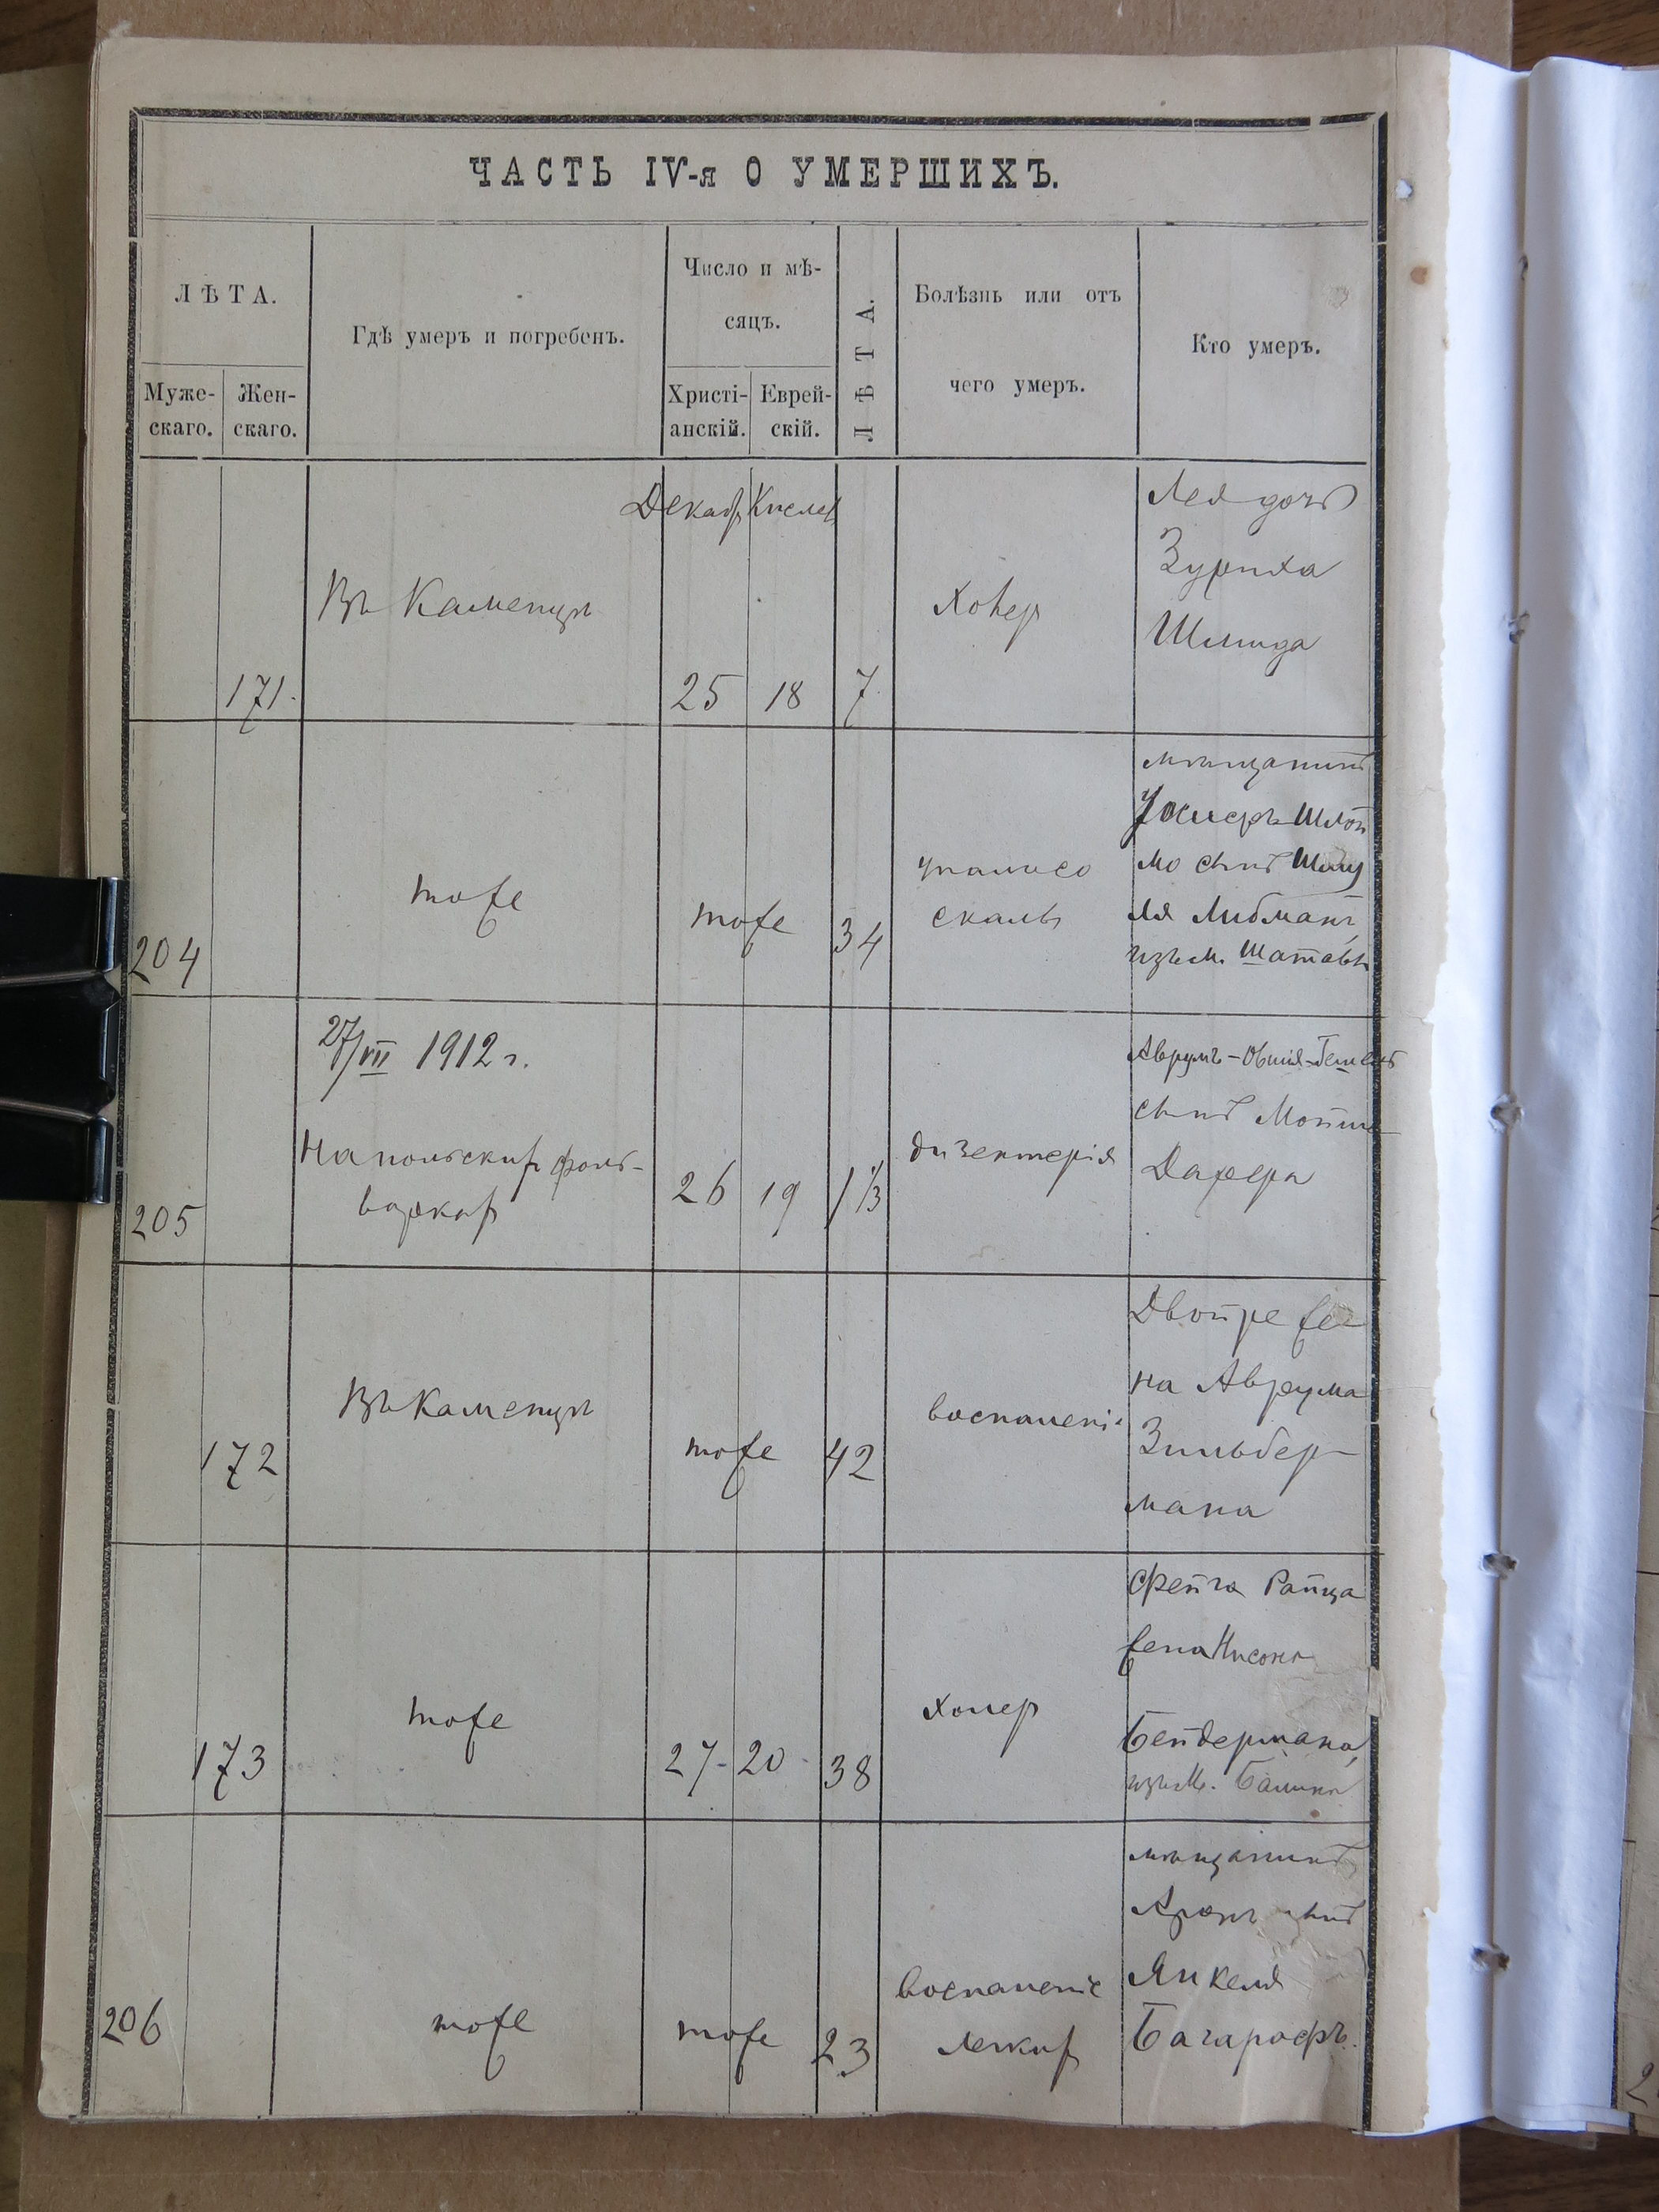 ЧАСТЬ IV-я О УМЕРШИХЪ.
ЛѢТА.
Муже-
скаго.
Жен-
скаго.
Гдѣ умеръ и погребенъ.
Число и мѣ-
сяцъ.
Христі-
анскій.
Еврей-
скій.
ЛѢТА.
Болѣзнь или отъ
чего умеръ.
Кто умеръ.
Декабр Кислев
171.
Въ Каменцѣ
25
18
7
Холер
Лея дочь
Зуриха
Шмида
204
тоже
тоже
34
мѣщанинъ
Шлой
мо сынъ Шму
ля Либманъ,
изъ м. Шатавы
205
27/VII 1912 г.
На польских фоль-
варках
26
19
1 1/3
дизентерія
Аврумъ-Овшія-
сынъ Мойше
Дахера
172
Въ Каменцѣ
тоже
42
воспаленіе
Двойре же-
на Аврума
Зильбер-
мана
173
тоже
27-
20
38
холер
Фейга Райца
жена Нисона
Бендермана,
изъ м. Балина
206
тоже
тоже
23
воспаленіе
легких
мѣщанинъ
Аронъ сынъ
Янкеля
Багарофъ.